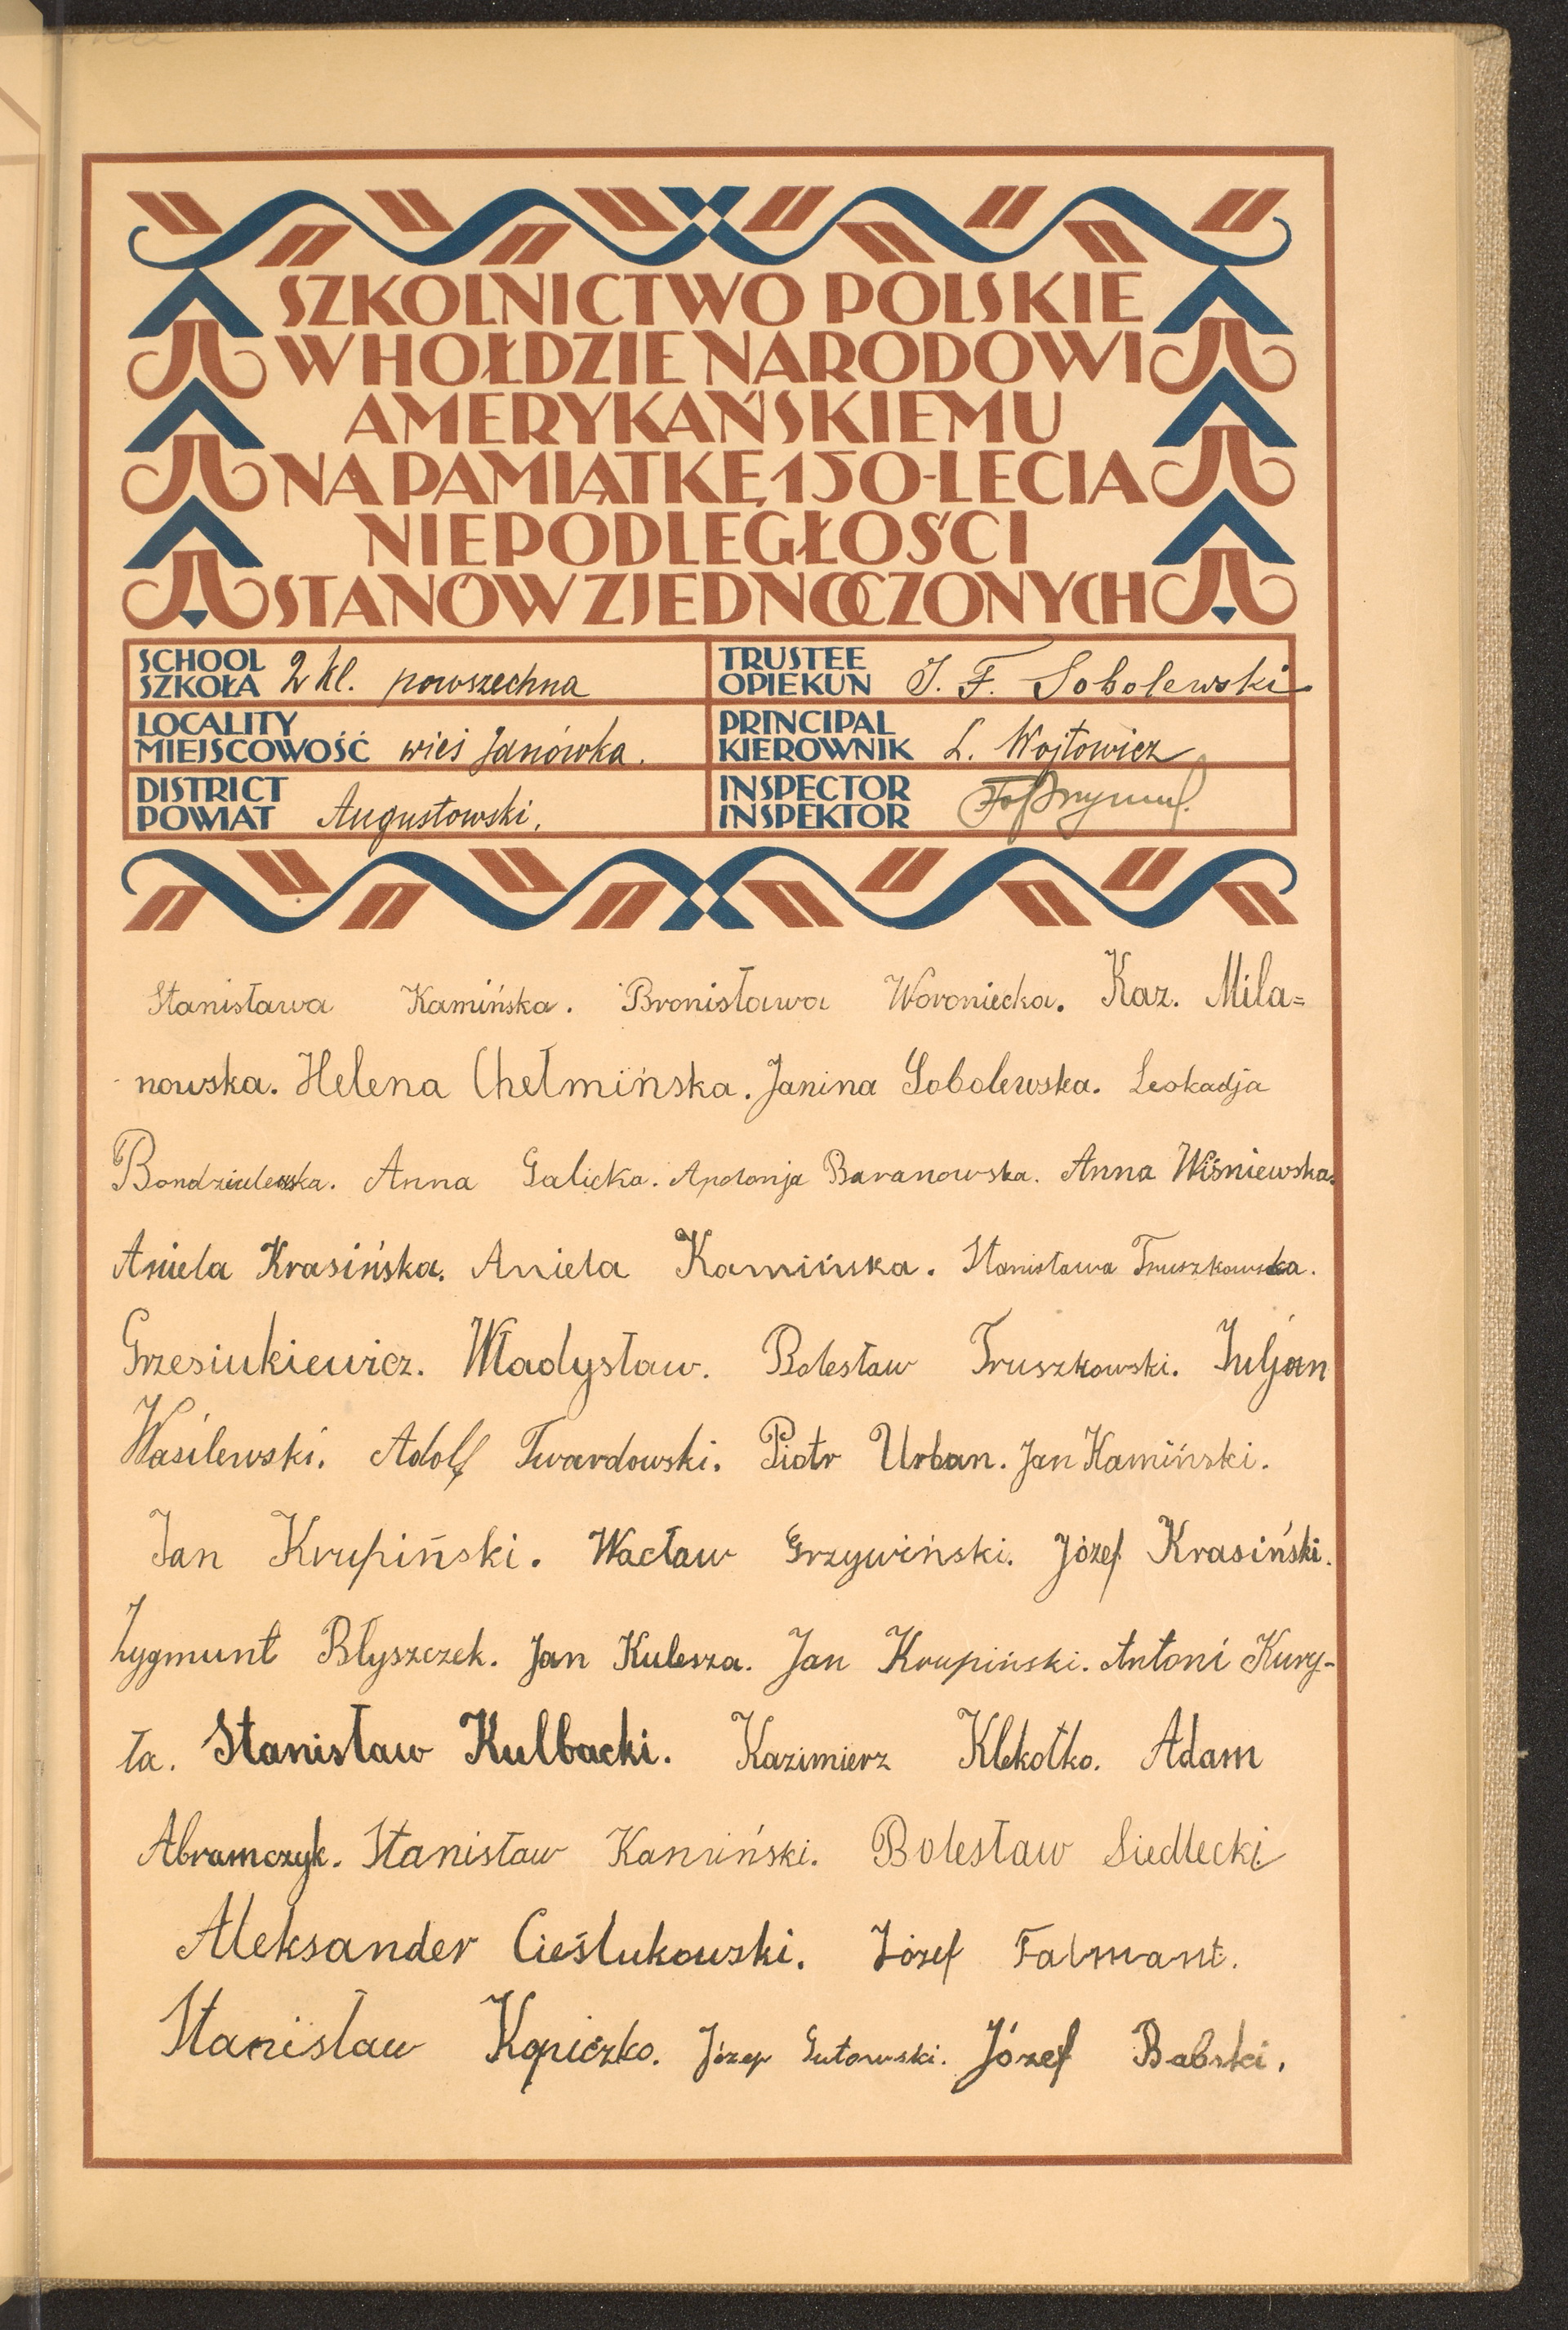 SZKOLNICTWO POLSKIE
W HOŁDZIE NARODOWI
AMERYKAŃSKIEMU
NA PAMIĄTKĘ 150-LECIA
NIEPODLEGŁOŚCI
STANÓW ZJEDNOCZONYCH
SCHOOL
SZKOŁA 2 kl. powszechna
TRUSTEE
OPIEKUN J. F. Sobolewski
LOCALITY
MIEJSCOWOŚĆ wieś Janówka.
PRINCIPAL
KIEROWNIK L. Wojtowicz
DISTRICT
POWIAT Augustowski.
INSPECTOR
INSPEKTOR
Stanisława Kamińska. Bronisława Woroniecka. Kaz. Mila=
nowska. Helena Chełmińska. Janina Sobolewska. Leokadja
Bondziulewska. Anna Galicka. Apolonja Baranowska. Anna Wiśniewska.
Aniela Krasińska. Aniela Kamińska. Stanisława Truszkowska.
Grzesiukiewicz. Władysław. Bolesław Truszkowski. Juljan
Wasilewski. Adolf Twardowski. Piotr Urban. Jan Kamiński.
Jan Krupiński. Wacław Grzywiński. Józef Krasiński.
Zygmunt Błyszczek. Jan Kulesza. Jan Krupiński. Antoni Kury-
ła. Stanisław Kulbacki. Kazimierz Klekotko. Adam
Abramczyk. Stanisław Kamiński. Bolesław Siedlecki
Aleksander Cieślukowski. Józef Falmant.
Stanisław Kopiczko. Józef Gutowski. Józef Babski.